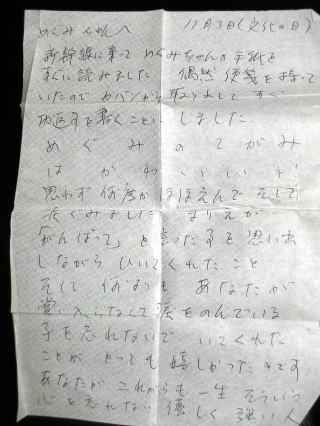 めぐみちゃんへ 11月3日(文化の日)
新幹線に乗って めぐみちゃんの手紙を
すぐに読みました 偶然 便箋を持って
いたので カバンから取り出して すぐ
お返事を書くことにしました.
めぐみのてがみ
はかわいいネ!
思わず何度かほほえんで そして
涙ぐみました まりえが
「がんばって」と言った事を思い出
しながら ひいてくれたこと
そして 何よりも あなたが
賞に入らなくて涙をのんでいる
子を忘れないで いてくれた
ことが とっても嬉しかったのです
あなたが これからも一生 そういう
心を忘れない 優しく 強い人